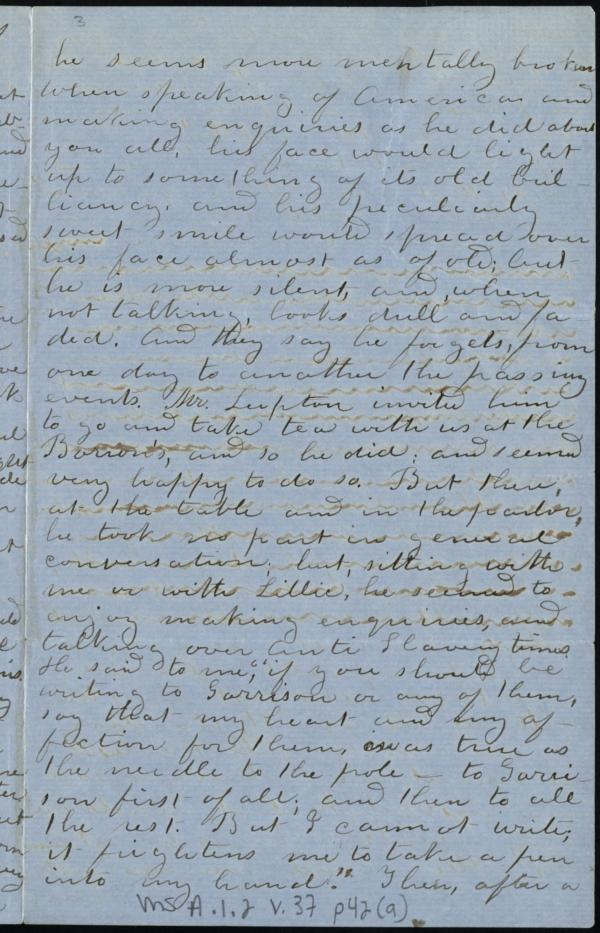 3
he seems more mentally broken
when speaking of America and
making enquiries as he did about
you all, his face would light
up to something of its old bril-
liancy, and his peculiarly
sweet smile would spread over
his face almost as of old; but
he is more silent, and, when
not talking, looks dull and fa
ded. And they say he forgets, from
one day to another the passing
events. Mr. Lupton invited him
to go and take tea with us at the
and so he did; and seemed
very happy to do so. But there,
at the table and in the parlor,
he took no part in general
conversation; but, sitting with
me or with Lillie, he seemed to
enjoy making enquiries, and
talking over Anti Slavery times.
He said to me, "if you should be
writing to Garrison or any of them,
say that my heart and my af-
fection for them, is as true as
the needle to the pole — to Garri-
son first of all; and then to all
the rest. But I cannot write;
it frightens me to take a pen
into my hand." Then, after a
Ms A.1.2 V.37 p42(a)